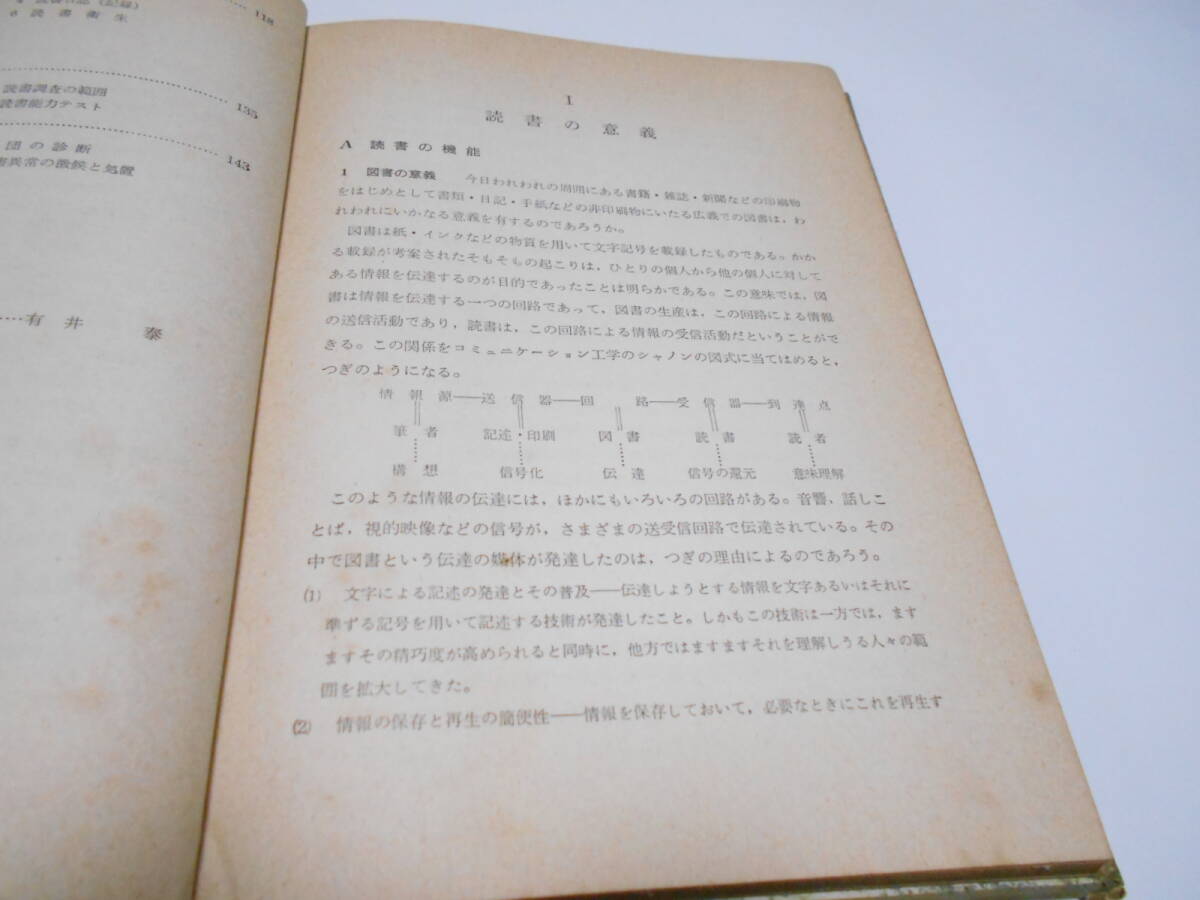 6 読書衛生
118
読書調査の範囲
135
読書能力テスト
団の診断
143
異常の徴候と処置
有井 泰
I
読書の意義
A 読書の機能
1 図書の意義 今日われわれの周囲にある書籍・雑誌・新聞などの印刷物
をはじめとして書類・日記・手紙などの非印刷物にいたる広義での図書は，わ
れわれにいかなる意義を有するのであろうか。
図書は紙・インクなどの物質を用いて文字記号を載録したものである。かか
る載録が考案されたそもそもの起こりは，ひとりの個人から他の個人に対して
ある情報を伝達するのが目的であったことは明らかである。この意味では，図
書は情報を伝達する一つの回路であって，図書の生産は，この回路による情報
の送信活動であり，読書は，この回路による情報の受信活動だということがで
きる。この関係をコミュニケーション工学のシャノンの図式に当てはめると，
つぎのようになる。
情報源——送信器——回路——受信器——到達点
筆者 記述・印刷 図書 読書 読者
構想 信号化 伝達 信号の還元 意味理解
このような情報の伝達には，ほかにもいろいろの回路がある。音響，話しこ
とば，視的映像などの信号が，さまざまの送受信回路で伝達されている。その
中で図書という伝達の媒体が発達したのは，つぎの理由によるのであろう。
(1) 文字による記述の発達とその普及——伝達しようとする情報を文字あるいはそれに
準ずる記号を用いて記述する技術が発達したこと。しかもこの技術は一方では，ます
ますその精巧度が高められると同時に，他方ではますますそれを理解しうる人々の範
囲を拡大してきた。
(2) 情報の保存と再生の簡便性——情報を保存しておいて，必要なときにこれを再生す